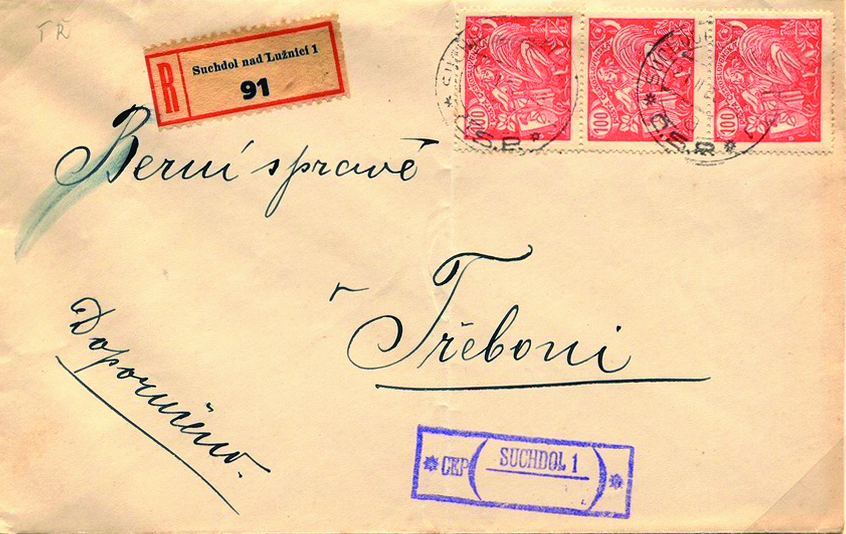 TŘ
R
Suchdol nad Lužnicí 1
91
100
100
100
Č.S.P.
Berní správě
v
Třeboni
Doporučeno.
* CKP ( SUCHDOL 1 ) *